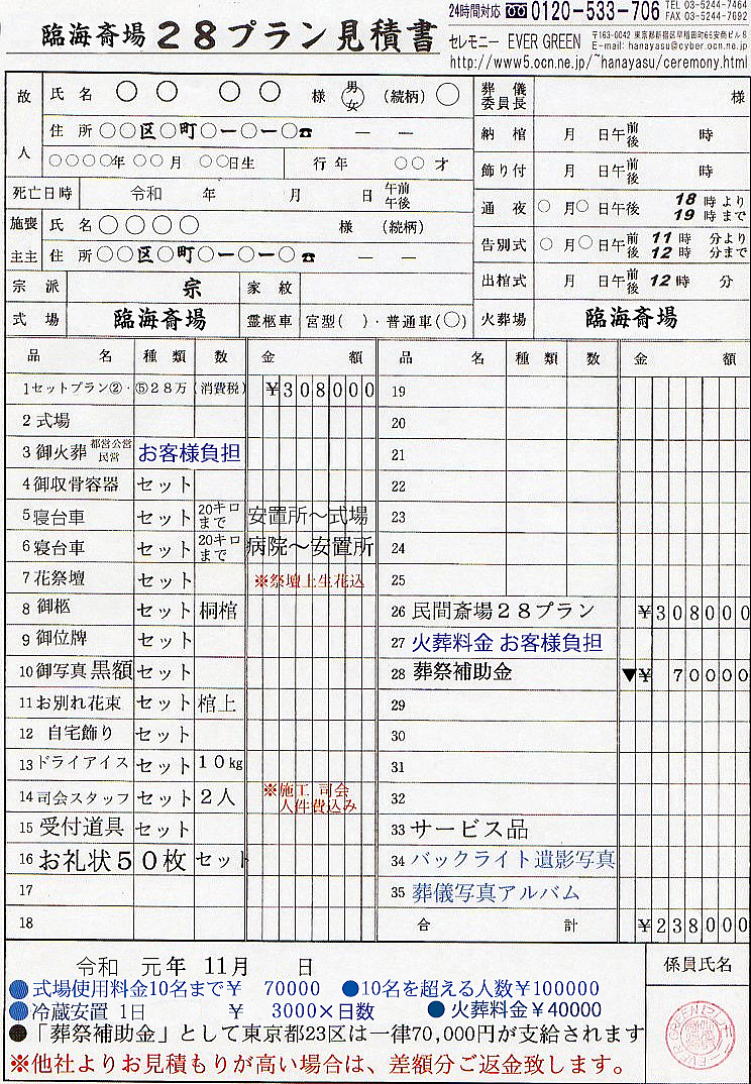 臨海斎場２８プラン見積書
24時間対応 0120-533-706 TEL 03-5244-7464
FAX 03-5244-7692
セレモニー EVER GREEN 〒163-0042 東京都新宿区早稲田町66安商ビル8
E-mail: hanayasu@cyber.ocn.ne.jp
http://www5.ocn.ne.jp/~hanayasu/ceremony.html
故人 氏名 ○ ○ ○ ○ 様 男 女 (続柄) ○
住所 ○○区○町○ー○ー○☎ ― ―
○○○○年 ○○月 ○○日生 行年 ○○才
死亡日時 令和 年 月 日 午前 午後
施主 喪主 氏名 ○○○○ 様 (続柄)
住所 ○○区○町○ー○ー○☎ ― ―
宗派 宗 家紋
式場 臨海斎場 霊柩車 宮型( )・普通車(○)
葬儀委員長 様
納棺 月 日午前後 時
飾り付 月 日午前後 時
通夜 ○月○日午後 18時より 19時まで
告別式 ○月○日午前後 11時 分より 12時 分まで
出棺式 月 日午前後 12時 分
火葬場 臨海斎場
品名 種類 数 金額
1 セットプラン②・⑤２８万 (消費税) ¥308000
2 式場
3 御火葬 都営公営 民営 お客様負担
4 御収骨容器 セット
5 寝台車 セット 20キロまで 安置所～式場
6 寝台車 セット 20キロまで 病院～安置所
7 花祭壇 セット ※祭壇上生花込
8 御柩 セット 桐棺
9 御位牌 セット
10 御写真 黒額 セット
11 お別れ花束 セット 棺上
12 自宅飾り セット
13 ドライアイス セット １０kg
14 司会スタッフ セット ２人 ※施工 司会 人件費込み
15 受付道具 セット
16 お礼状５０枚 セット
17
18
品名 種類 数 金額
19
20
21
22
23
24
25
26 民間斎場２８プラン ¥308000
27 火葬料金 お客様負担
28 葬祭補助金 ▼¥ 70000
29
30
31
32
33 サービス品
34 バックライト遺影写真
35 葬儀写真アルバム
合計 ¥238000
令和 元年 11月 日
係員氏名
●式場使用料金10名まで¥ 70000 ●10名を超える人数¥100000
●冷蔵安置 1日 ¥ 3000×日数 ●火葬料金¥40000
●「葬祭補助金」として東京都23区は一律70,000円が支給されます
※他社よりお見積もりが高い場合は、差額分ご返金致します。